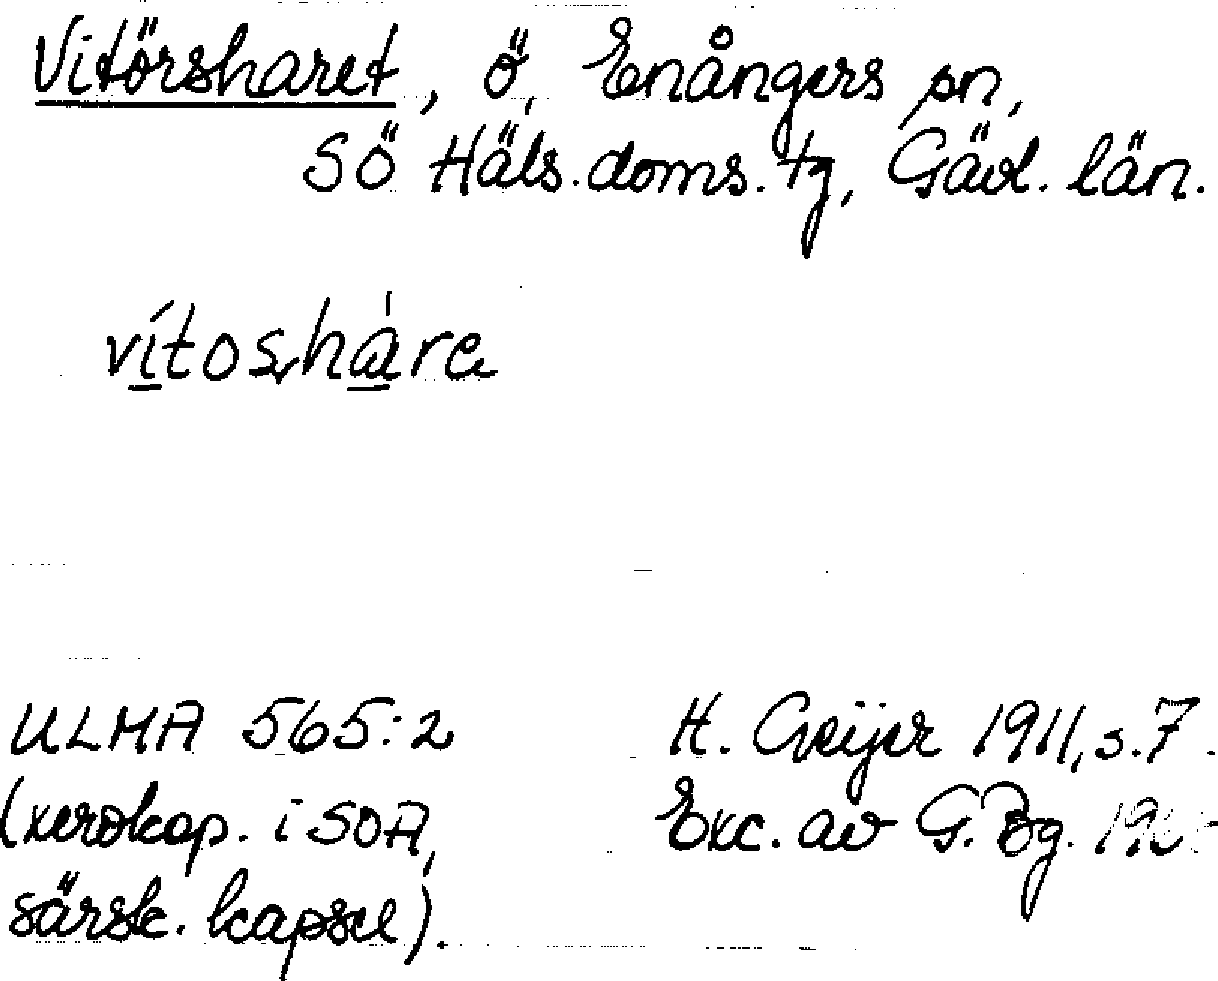 Vitörsharet, ö, Enångers sn,
SÖ Häls. doms. tg, Gävl. län.
vítosháre
ULMA 565:2
(xerokop. i SOA,
särsk. kapsel).
H. Geijer 1911, s. 7.
Exc. av G. Bg.